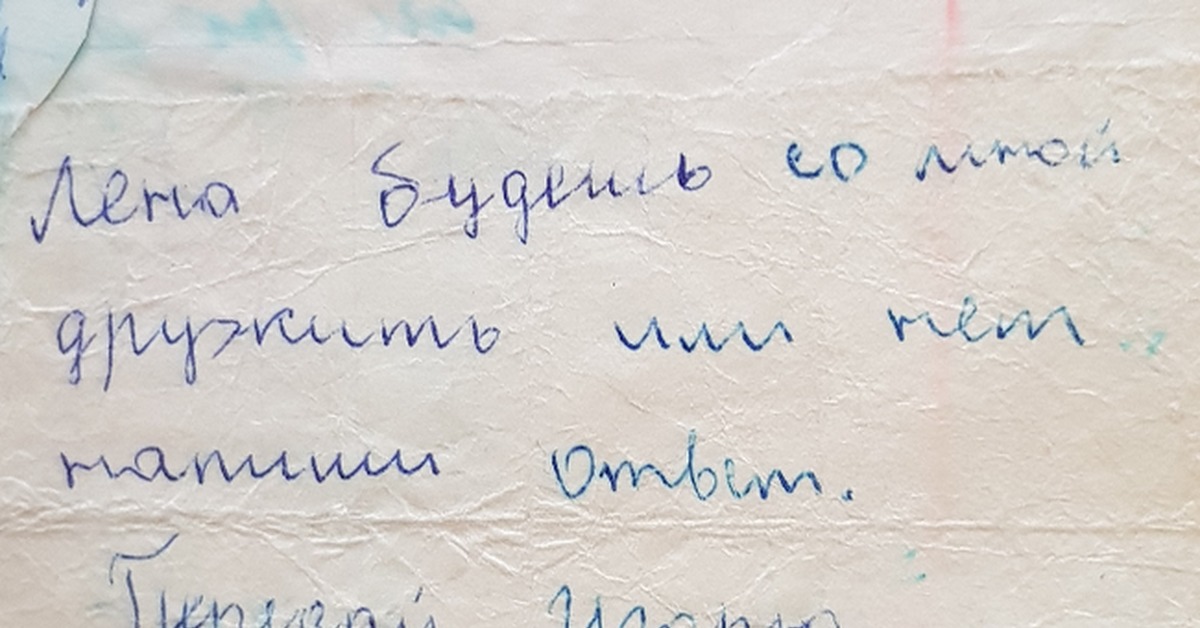 Лена будешь со мной
дружить или нет
напиши ответ.
Передай Игорю